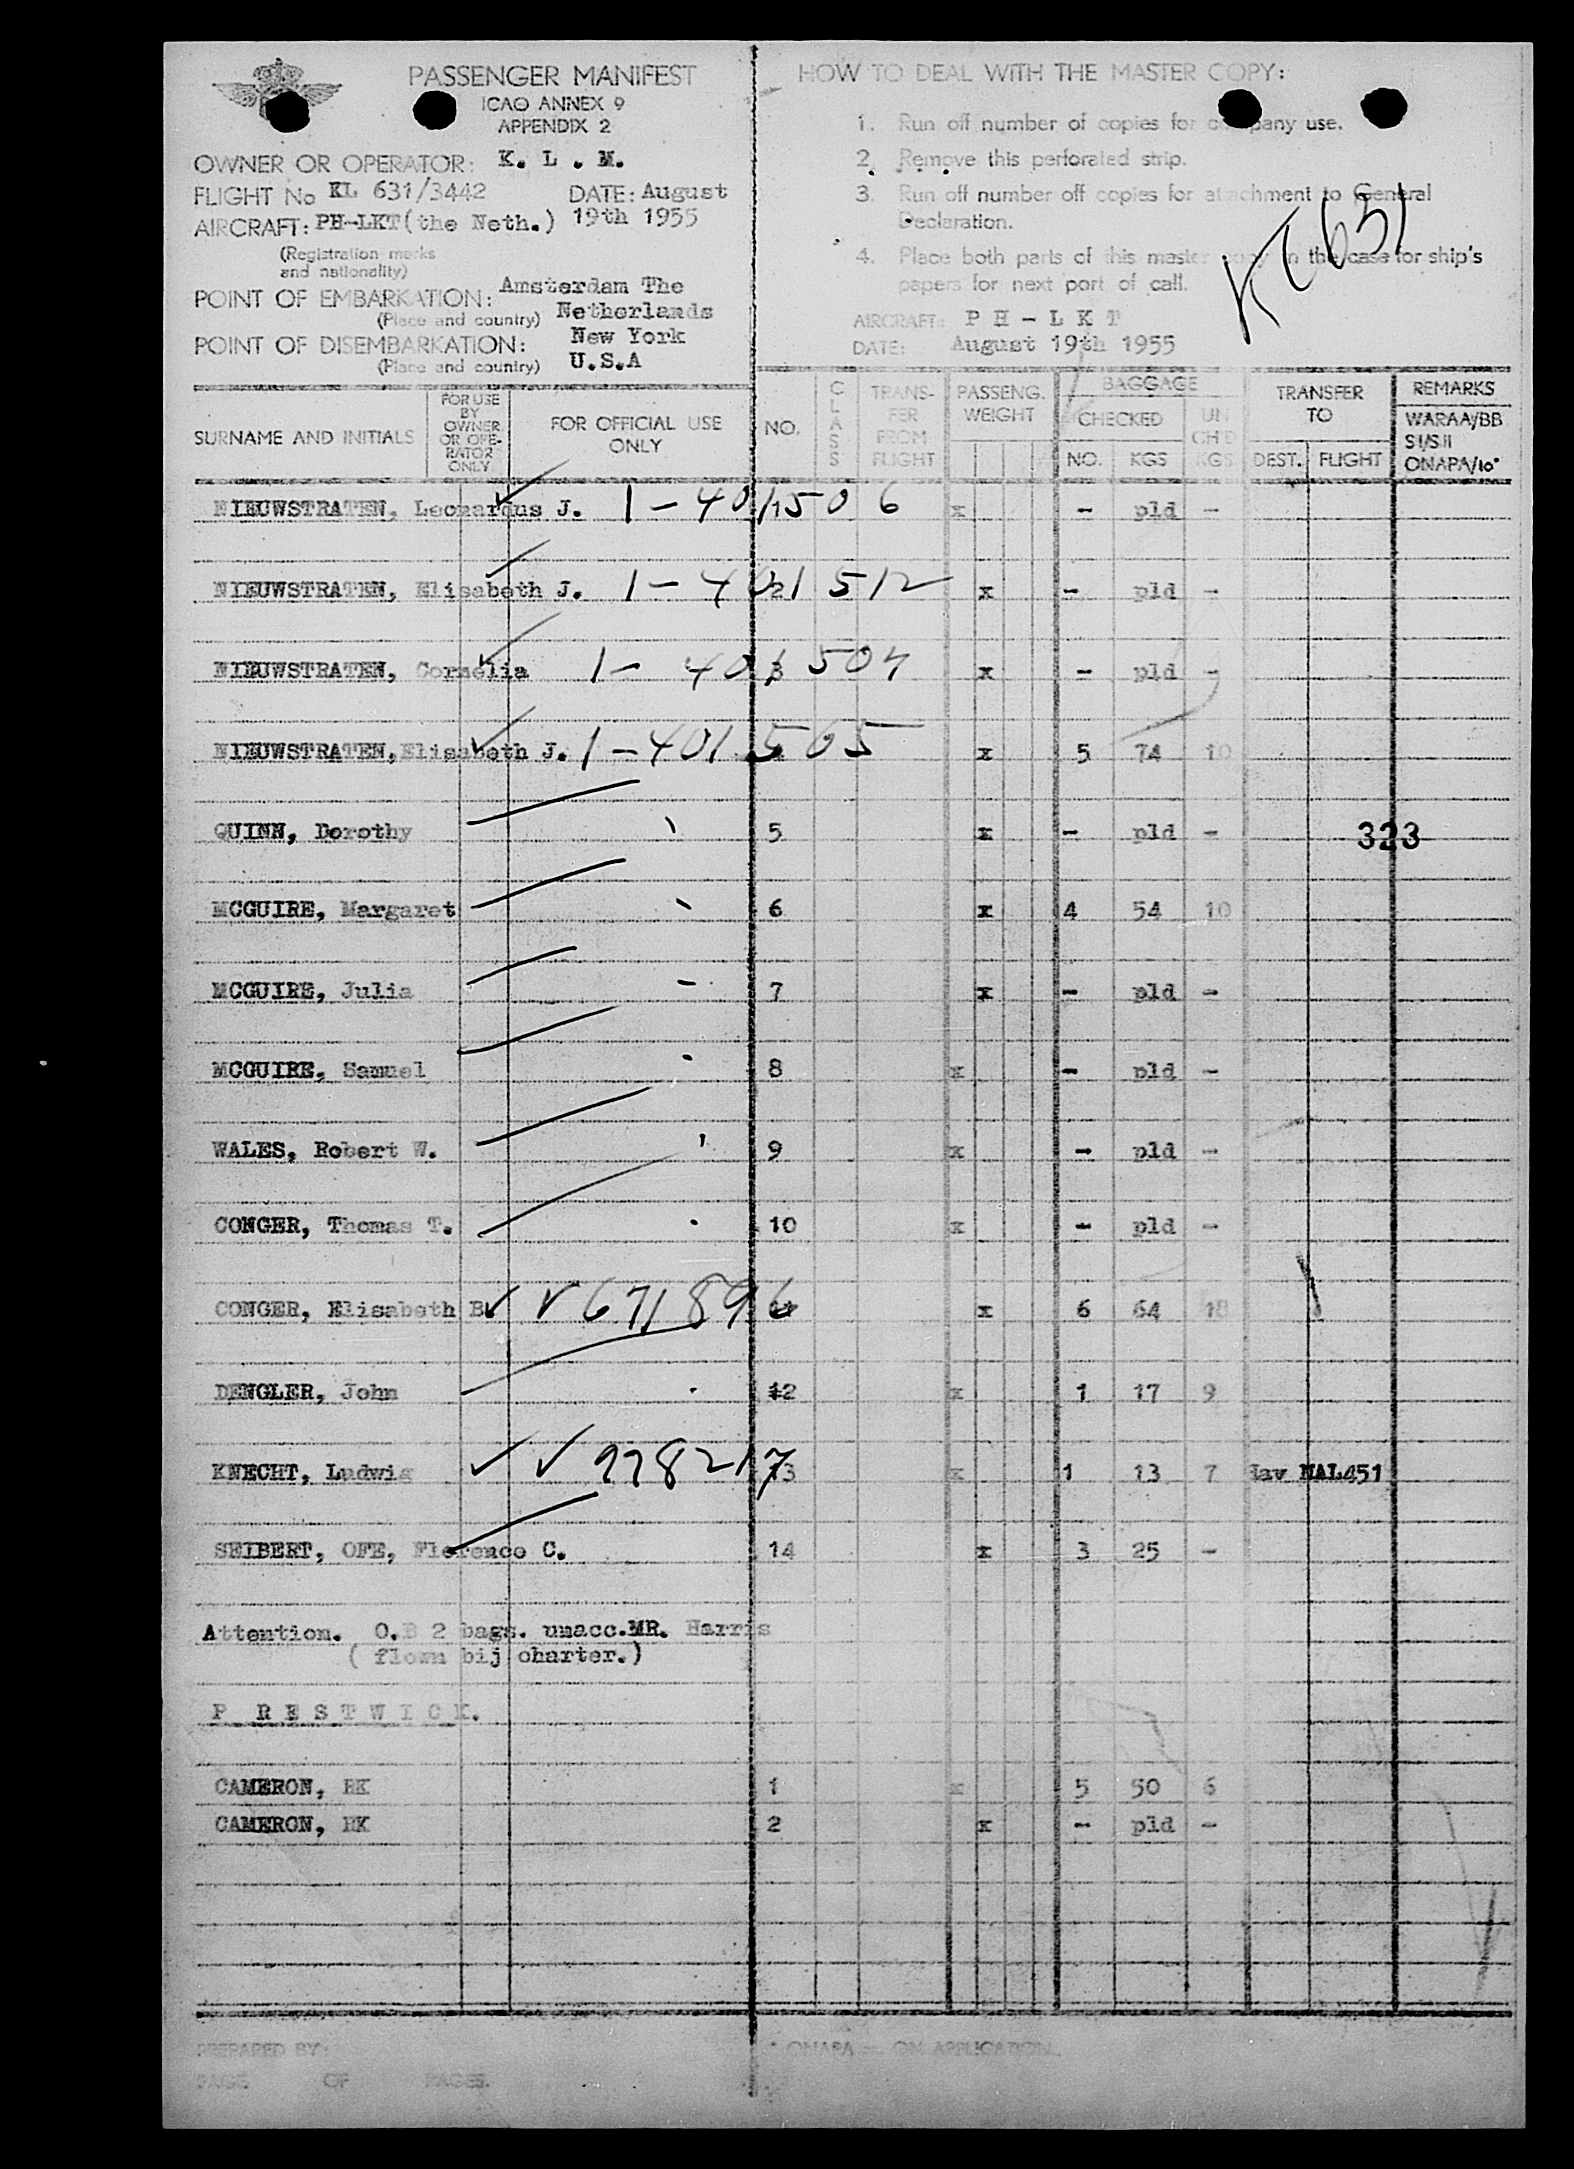 PASSENGER MANIFEST
ICAO ANNEX 9
APPENDIX 2
OWNER OR OPERATOR: K. L . M.
FLIGHT No KL 631/3442 DATE: August
AIRCRAFT: PH-LKT(the Neth.) 19th 1955
(Registration marks
and nationality)
POINT OF EMBARKATION: Amsterdam The
(Place and country) Netherlands
POINT OF DISEMBARKATION: New York
(Place and country) U.S.A
HOW TO DEAL WITH THE MASTER COPY:
1. Run off number of copies for company use.
2. Remove this perforated strip.
3. Run off number off copies for attachment to General
Declaration.
4. Place both parts of this master copy in the case for ship's
papers for next port of call.
KL 631
AIRCRAFT: P H - L K T
DATE: August 19th 1955
SURNAME AND INITIALS
FOR USE
BY
OWNER
OR OPE-
RATOR
ONLY
FOR OFFICIAL USE
ONLY
NO.
CLASS
TRANS-
FER
FROM
FLIGHT
PASSENG.
WEIGHT
BAGGAGE
CHECKED
NO. KGS
UN
CH'D
KGS
TRANSFER
TO
DEST. FLIGHT
REMARKS
WARAA/BB
SI/SII
ONAPA/10*
NIEUWSTRATEN, Leonardus J. 1-401506 1 x - pld -
NIEUWSTRATEN, Elisabeth J. 1-401512 2 x - pld -
NIEUWSTRATEN, Cornelia 1-401504 3 x - pld -
NIEUWSTRATEN,Elisabeth J. 1-401505 x 5 74 10
QUINN, Dorothy 5 x - pld -
323
MCGUIRE, Margaret 6 x 4 54 10
MCGUIRE, Julia 7 x - pld -
MCGUIRE, Samuel 8 x - pld -
WALES, Robert W. 9 x - pld -
CONGER, Thomas T. 10 x - pld -
CONGER, Elisabeth B. ✓ ✓ 671896 x 6 64 18
DENGLER, John 12 x 1 17 9
KNECHT, Ludwig ✓ ✓ 978217 13 x 1 13 7 Hav NAL451
SEIBERT, OFE, Florence C. 14 x 3 25 -
Attention. O.B 2 bags. unacc.MR. Harris
( flown bij charter.)
P R E S T W I C K.
CAMERON, RK 1 x 5 50 6
CAMERON, RK 2 x - pld -
PREPARED BY:
PAGE OF PAGES.
* ONAPA — ON APPLICATION.